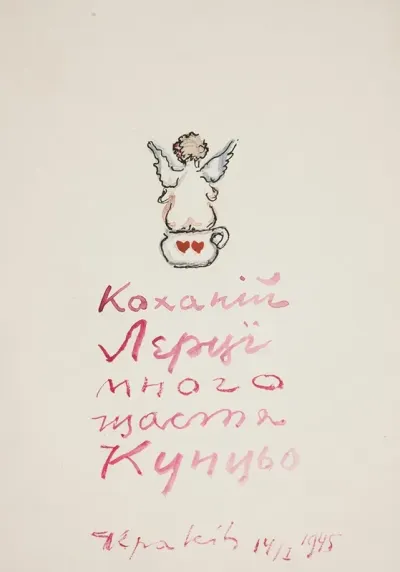 Коханій
Лєрці
много
щастя
Кунцьо
Краків 14/I 1945